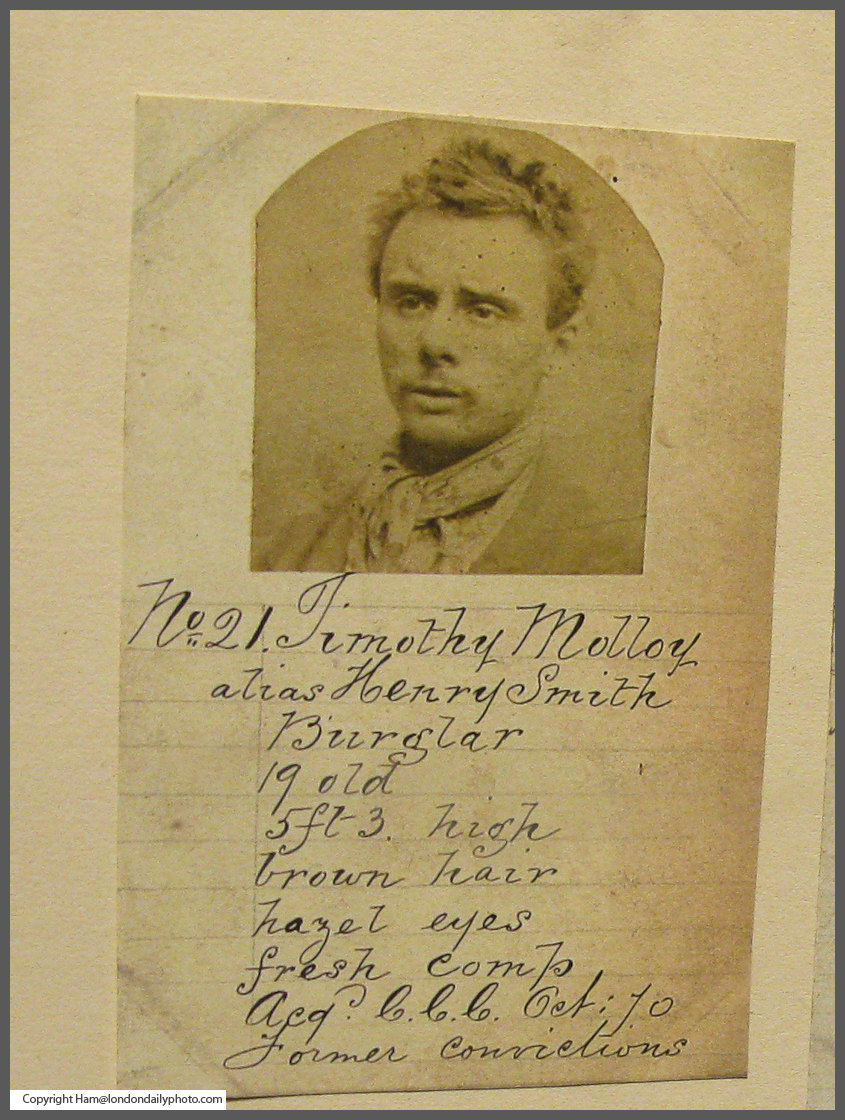 No. 21. Timothy Molloy
alias Henry Smith
Burglar
19 old
5ft 3. high
brown hair
hazel eyes
fresh comp
Acqd. C.C.C. Oct: 70
Former convictions
Copyright Ham@londondailyphoto.com